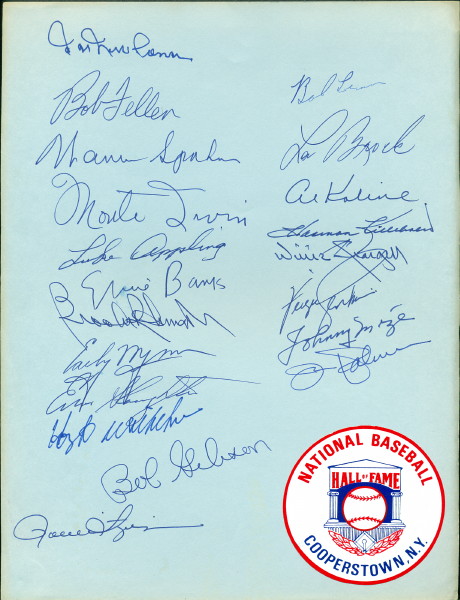 Bob Feller
Warren Spahn
Monte Irvin
Luke Appling
Ernie Banks
Early Wynn
Enos Slaughter
Hoyt Wilhelm
Bob Gibson
Bob Lemon
Lou Brock
Al Kaline
Harmon Killebrew
Willie Stargell
Fergie Jenkins
Johnny Mize
Jim Palmer
NATIONAL BASEBALL
HALL OF FAME
COOPERSTOWN, N.Y.